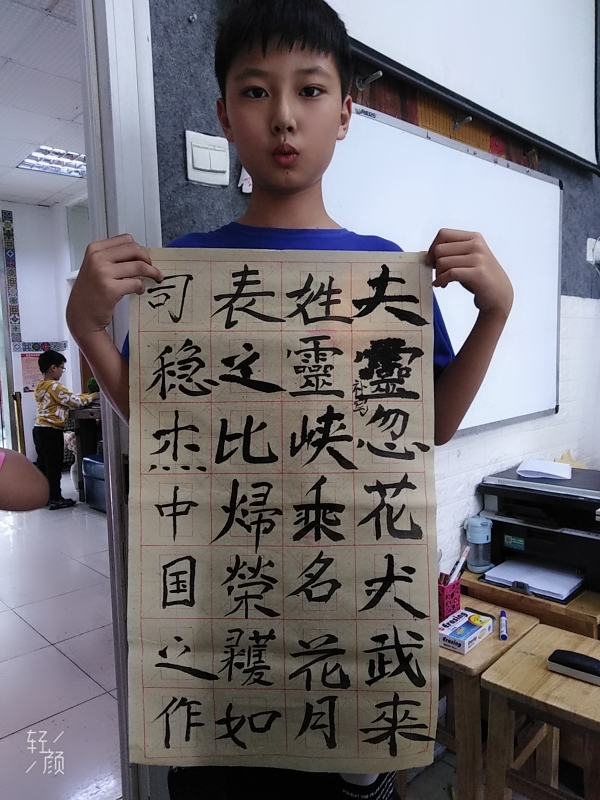 夫靈忽花犬武來
补写
姓靈峡乘名花月
表之比帰榮如
司稳杰中国之作
Erasing
轻颜